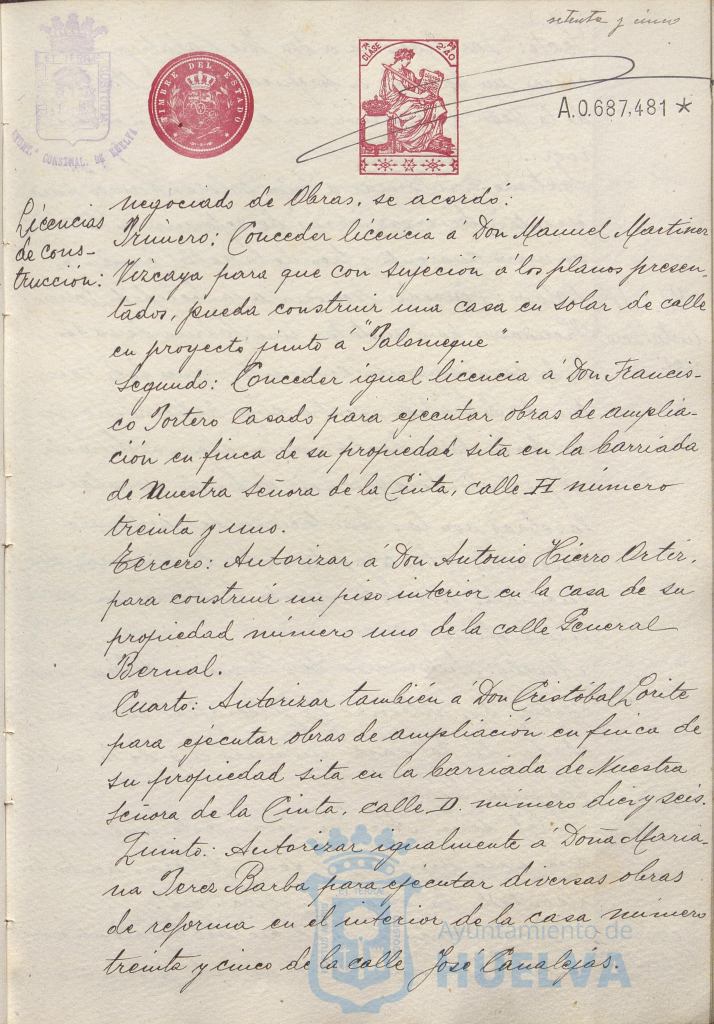 setenta y cinco
TIMBRE DEL ESTADO
CLASE 7ª
Pª 2'40
A.0.687,481 *
AYUNT. CONSTNAL. DE HUELVA
Licencias
de cons-
trucción:
negociado de Obras, se acordó:
Primero: Conceder licencia á Don Manuel Martinez
Vizcaya para que con sujeción á los planos presen-
tados, pueda construir una casa en solar de calle
en proyecto junto á "Palomeque"
Segundo: Conceder igual licencia á Don Francis-
co Tortero Casado para ejecutar obras de amplia-
ción en finca de su propiedad sita en la barriada
de Nuestra Señora de la Cinta, calle H número
treinta y uno.
Tercero: Autorizar á Don Antonio Hierro Ortiz,
para construir un piso interior en la casa de su
propiedad número uno de la calle General
Bernal.
Cuarto: Autorizar también á Don Cristóbal Lorite
para ejecutar obras de ampliación en finca de
su propiedad sita en la barriada de Nuestra
Señora de la Cinta, calle D. número diez y seis.
Quinto: Autorizar igualmente á Doña Maria-
na Perez Barba para ejecutar diversas obras
de reforma en el interior de la casa número
treinta y cinco de la calle José Canalejas.
Ayuntamiento de
HUELVA